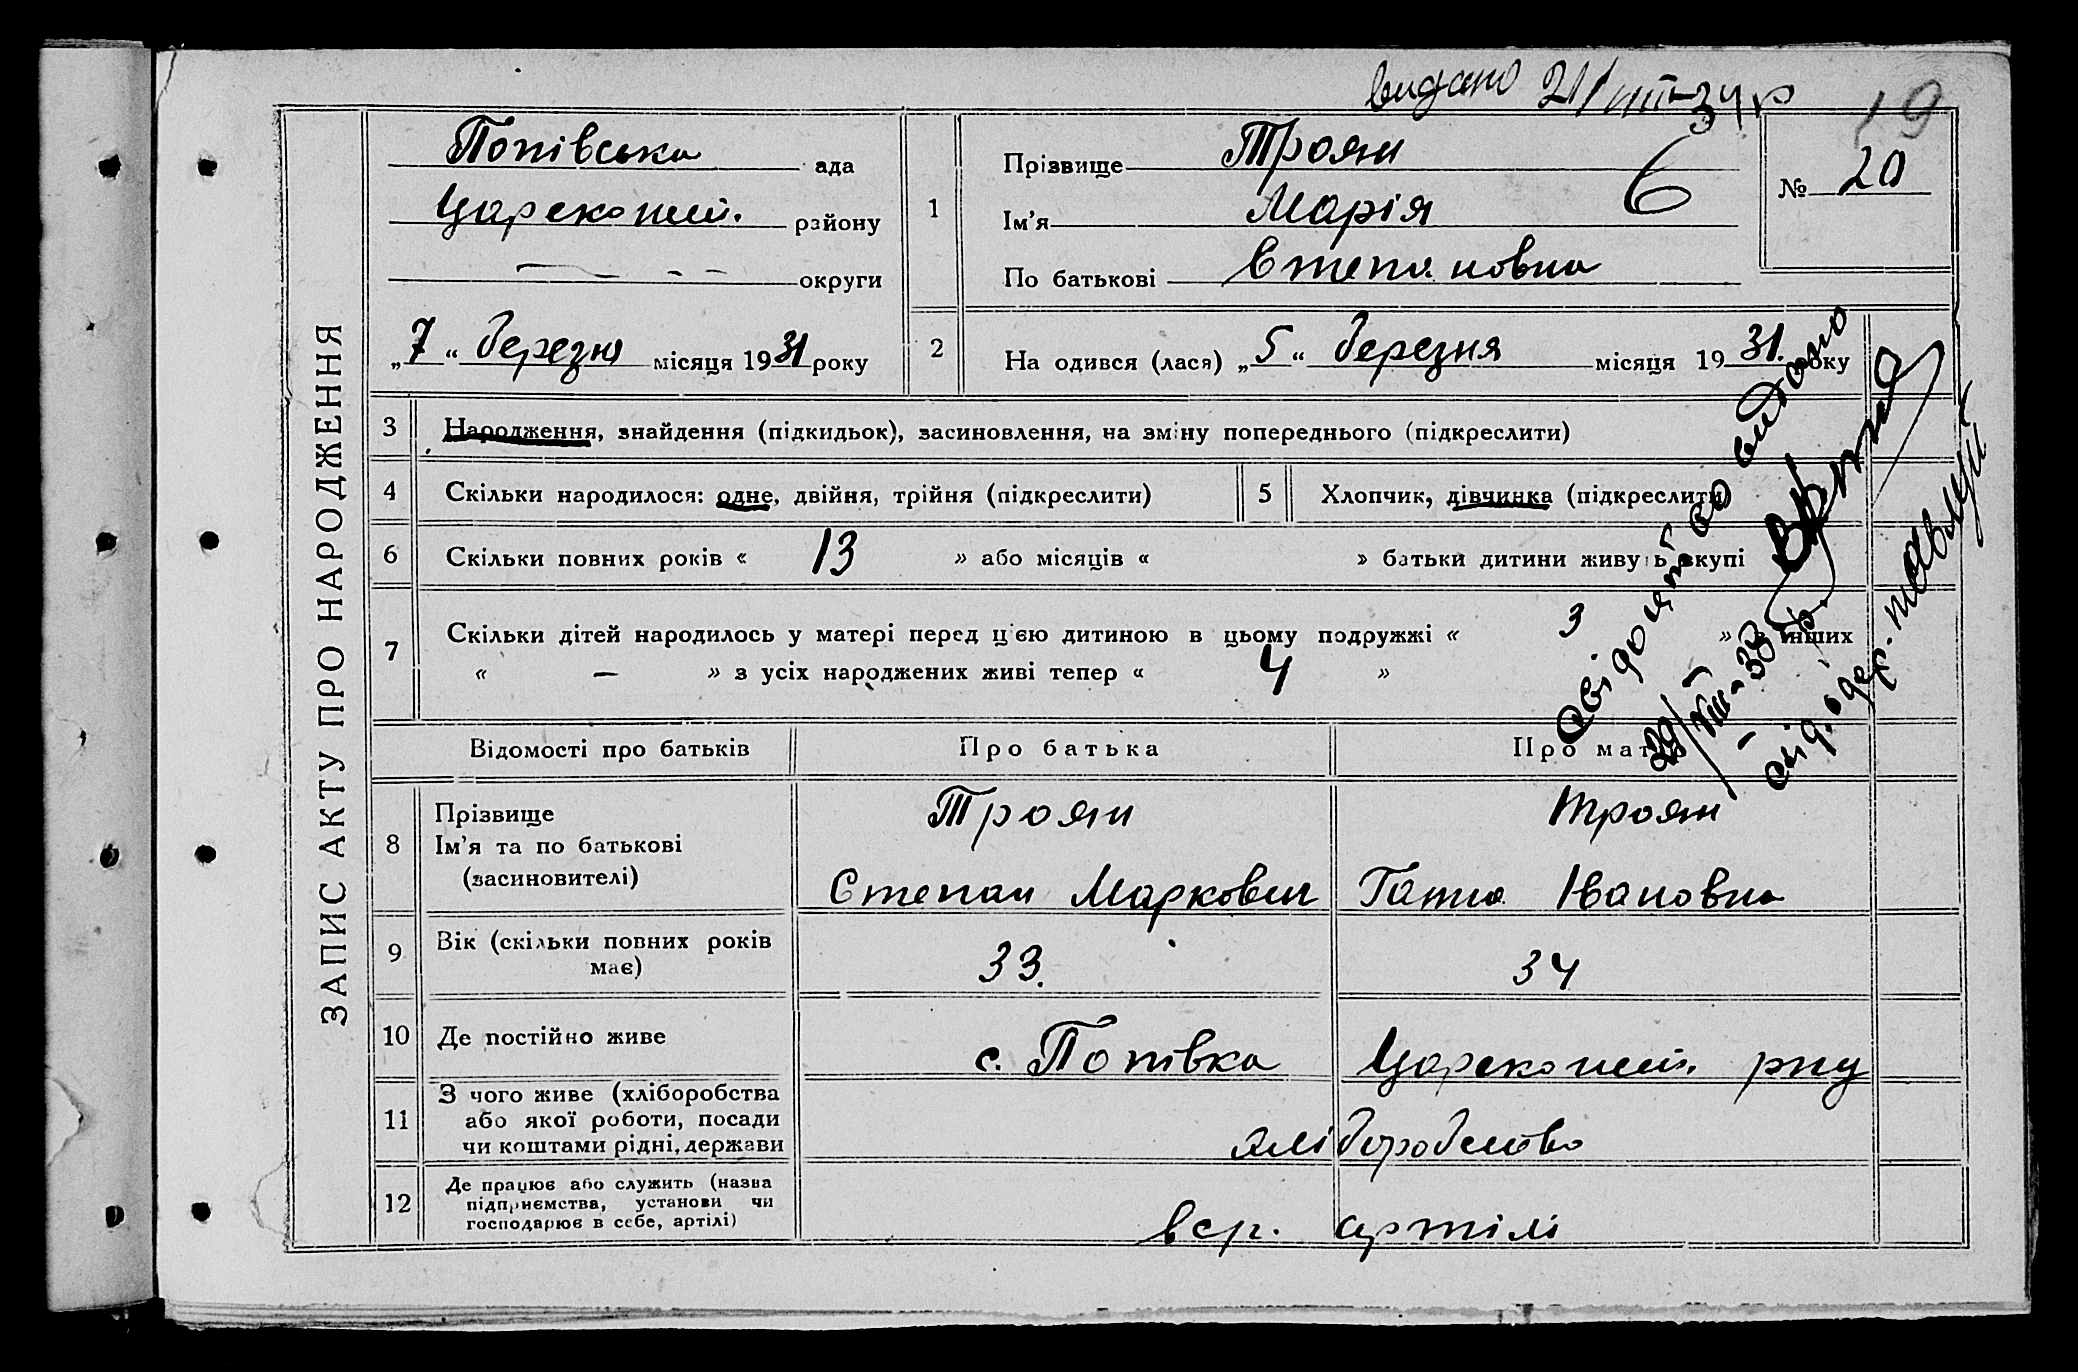 видано 21/VIII-34 р
19
ЗАПИС АКТУ ПРО НАРОДЖЕННЯ
Попівська ада
Царекопий. району
округи
„7“ березня місяця 1931 року
1
Прізвище Троян
Ім’я Марія
По батькові Степановна
6
№ 20
2 На одився (лася) „5“ березня місяця 1931. року
3 Народження, знайдення (підкидьок), засиновлення, на зміну попереднього (підкреслити)
4 Скільки народилося: одне, двійня, трійня (підкреслити)
5 Хлопчик, дівчинка (підкреслити)
6 Скільки повних років « 13 » або місяців « » батьки дитини живуть вкупі
7 Скільки дітей народилось у матері перед цією дитиною в цьому подружжі « 3 » в інших
« — » з усіх народжених живі тепер « 4 »
свідоцтво видано
29/VIII-38 р.
свід. одер.
Відомості про батьків Про батька Про матір
8 Прізвище
Ім’я та по батькові
(засиновителі)
Троян
Степан Маркович
Троян
Ганна Івановна
9 Вік (скільки повних років
має)
33. 34
10 Де постійно живе с. Попівка Царекопий. рну
11 З чого живе (хліборобства
або якої роботи, посади
чи коштами рідні, держави
хліборобство
12 Де працює або служить (назва
підприємства, установи чи
господарює в себе, артілі)
в ср. артілі